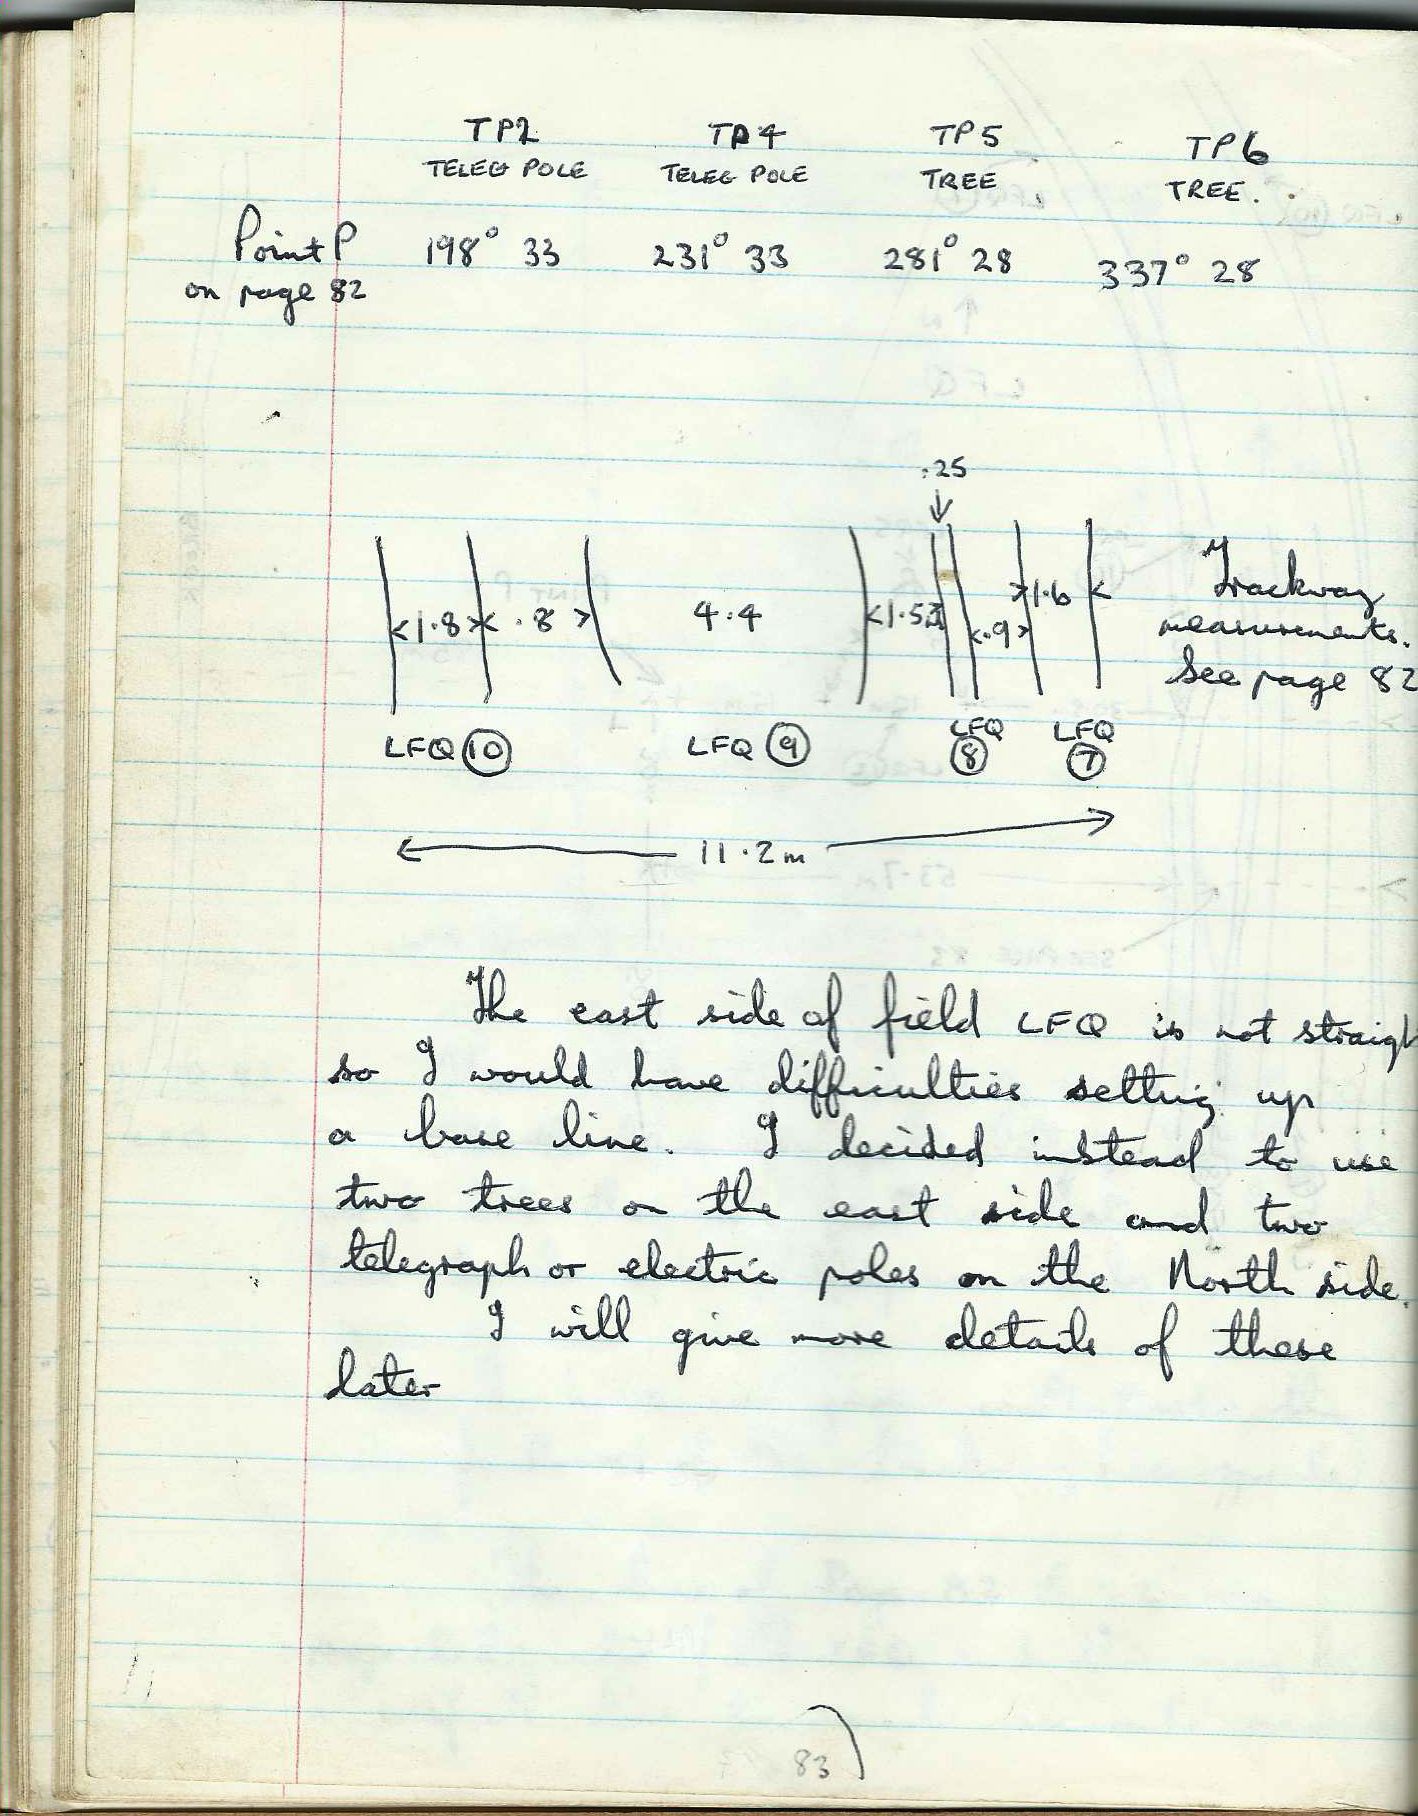 TP2 TP4 TP5 TP6
TELEG POLE TELEG POLE TREE TREE.
Point P 198° 33 231° 33 281° 28 337° 28
on page 82
.25
<1.8>< .8 > 4.4 <1.5 <.9> >1.6<
Trackway
measurements.
See page 82
LFQ ⑩ LFQ ⑨ LFQ ⑧ LFQ ⑦
11.2m
The east side of field LFQ is not straigh
so I would have difficulties setting up
a base line. I decided instead to use
two trees on the east side and two
telegraph or electric poles on the North side.
I will give more details of these
later
83